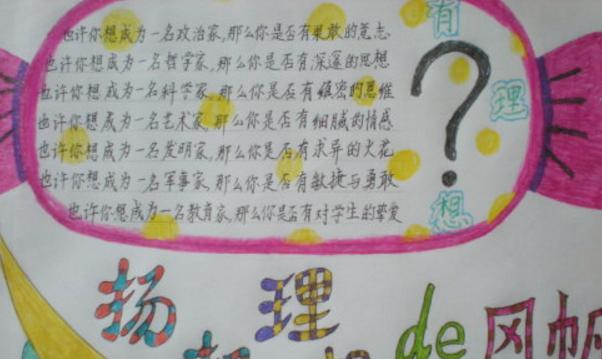 也许你想成为一名政治家,那么你是否有果敢的意志
也许你想成为一名哲学家,那么你是否有深邃的思想
也许你想成为一名科学家,那么你是否有缜密的思维
也许你想成为一名艺术家,那么你是否有细腻的情感
也许你想成为一名发明家,那么你是否有求异的火花
也许你想成为一名军事家,那么你是否有敏捷与勇敢
也许你想成为一名教育家,那么你是否有对学生的挚爱
有
理
想
?
扬 理
de 风帆